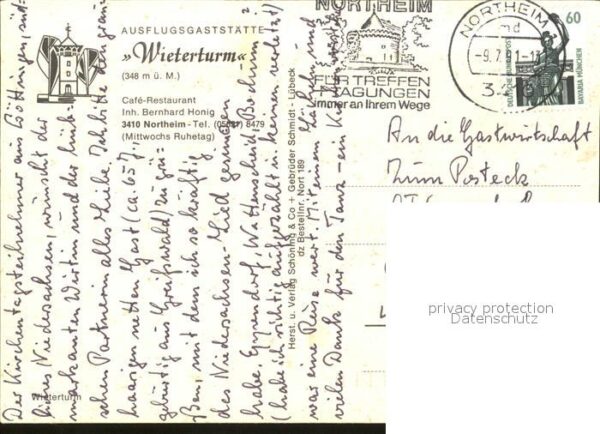 AUSFLUGSGASTSTÄTTE
»Wieterturm«
(348 m ü. M.)
Café-Restaurant
Inh. Bernhard Honig
3410 Northeim - Tel. 8479
(Mittwochs Ruhetag)
NORTHEIM
FÜR TREFFEN
TAGUNGEN
immer an Ihrem Wege
NORTHEIM
60
DEUTSCHE BUNDESPOST
BAVARIA MÜNCHEN
An die Gastwirtschaft
Zum Posteck
Herst. u. Verlag Schöning & Co + Gebrüder Schmidt - Lübeck
dz Bestellnr. Nort 189
Wieterturm
Der Kirchentagsteilnehmer aus Göttingen, süd-
liches Niedersachsen, wünscht der
markanten Wirtin und der hüb-
schen Partnerin alles Liebe. Ich bitte den grau-
haarigen netten Gast (ca. 65 J.,
gebürtig aus Greifswald) zu grü-
ßen, mit dem ich so kräftig
das Niedersachsen-Lied gesungen
habe. Eppendorf, Wattenscheid, Bochum
(habe ich richtig aufgezählt in keinen verletzt)
war eine Reise wert. Mit einem Lächeln und
vielen Dank für den Tanz - ein
privacy protection
Datenschutz